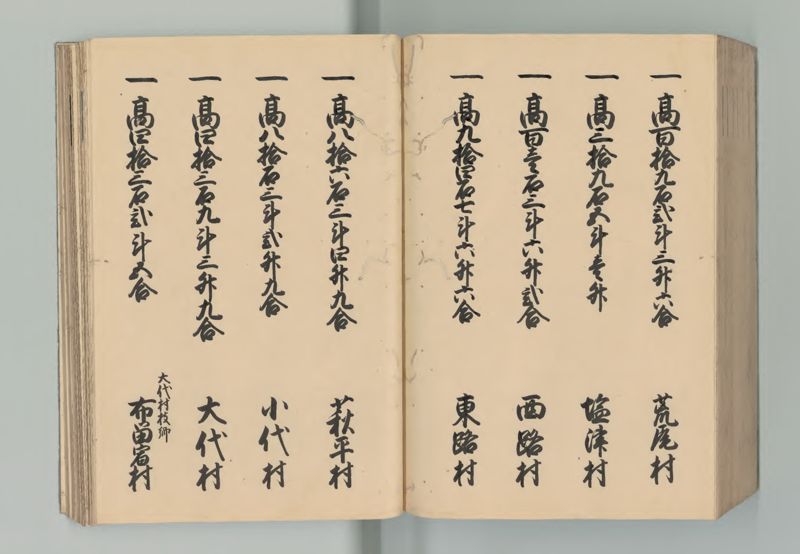 一高百拾九石弐斗三升六合 荒尾村
一高三拾九石五斗壱升 塩津村
一高百壱石三斗六升弐合 西路村
一高九拾四石七斗六升六合 東路村
一高八拾六石三斗四升九合 萩平村
一高八拾石三斗弐升九合 小代村
一高四拾三石九斗三升九合 大代村
大代村枝郷
一高四拾三石弐斗五合 布留宿村